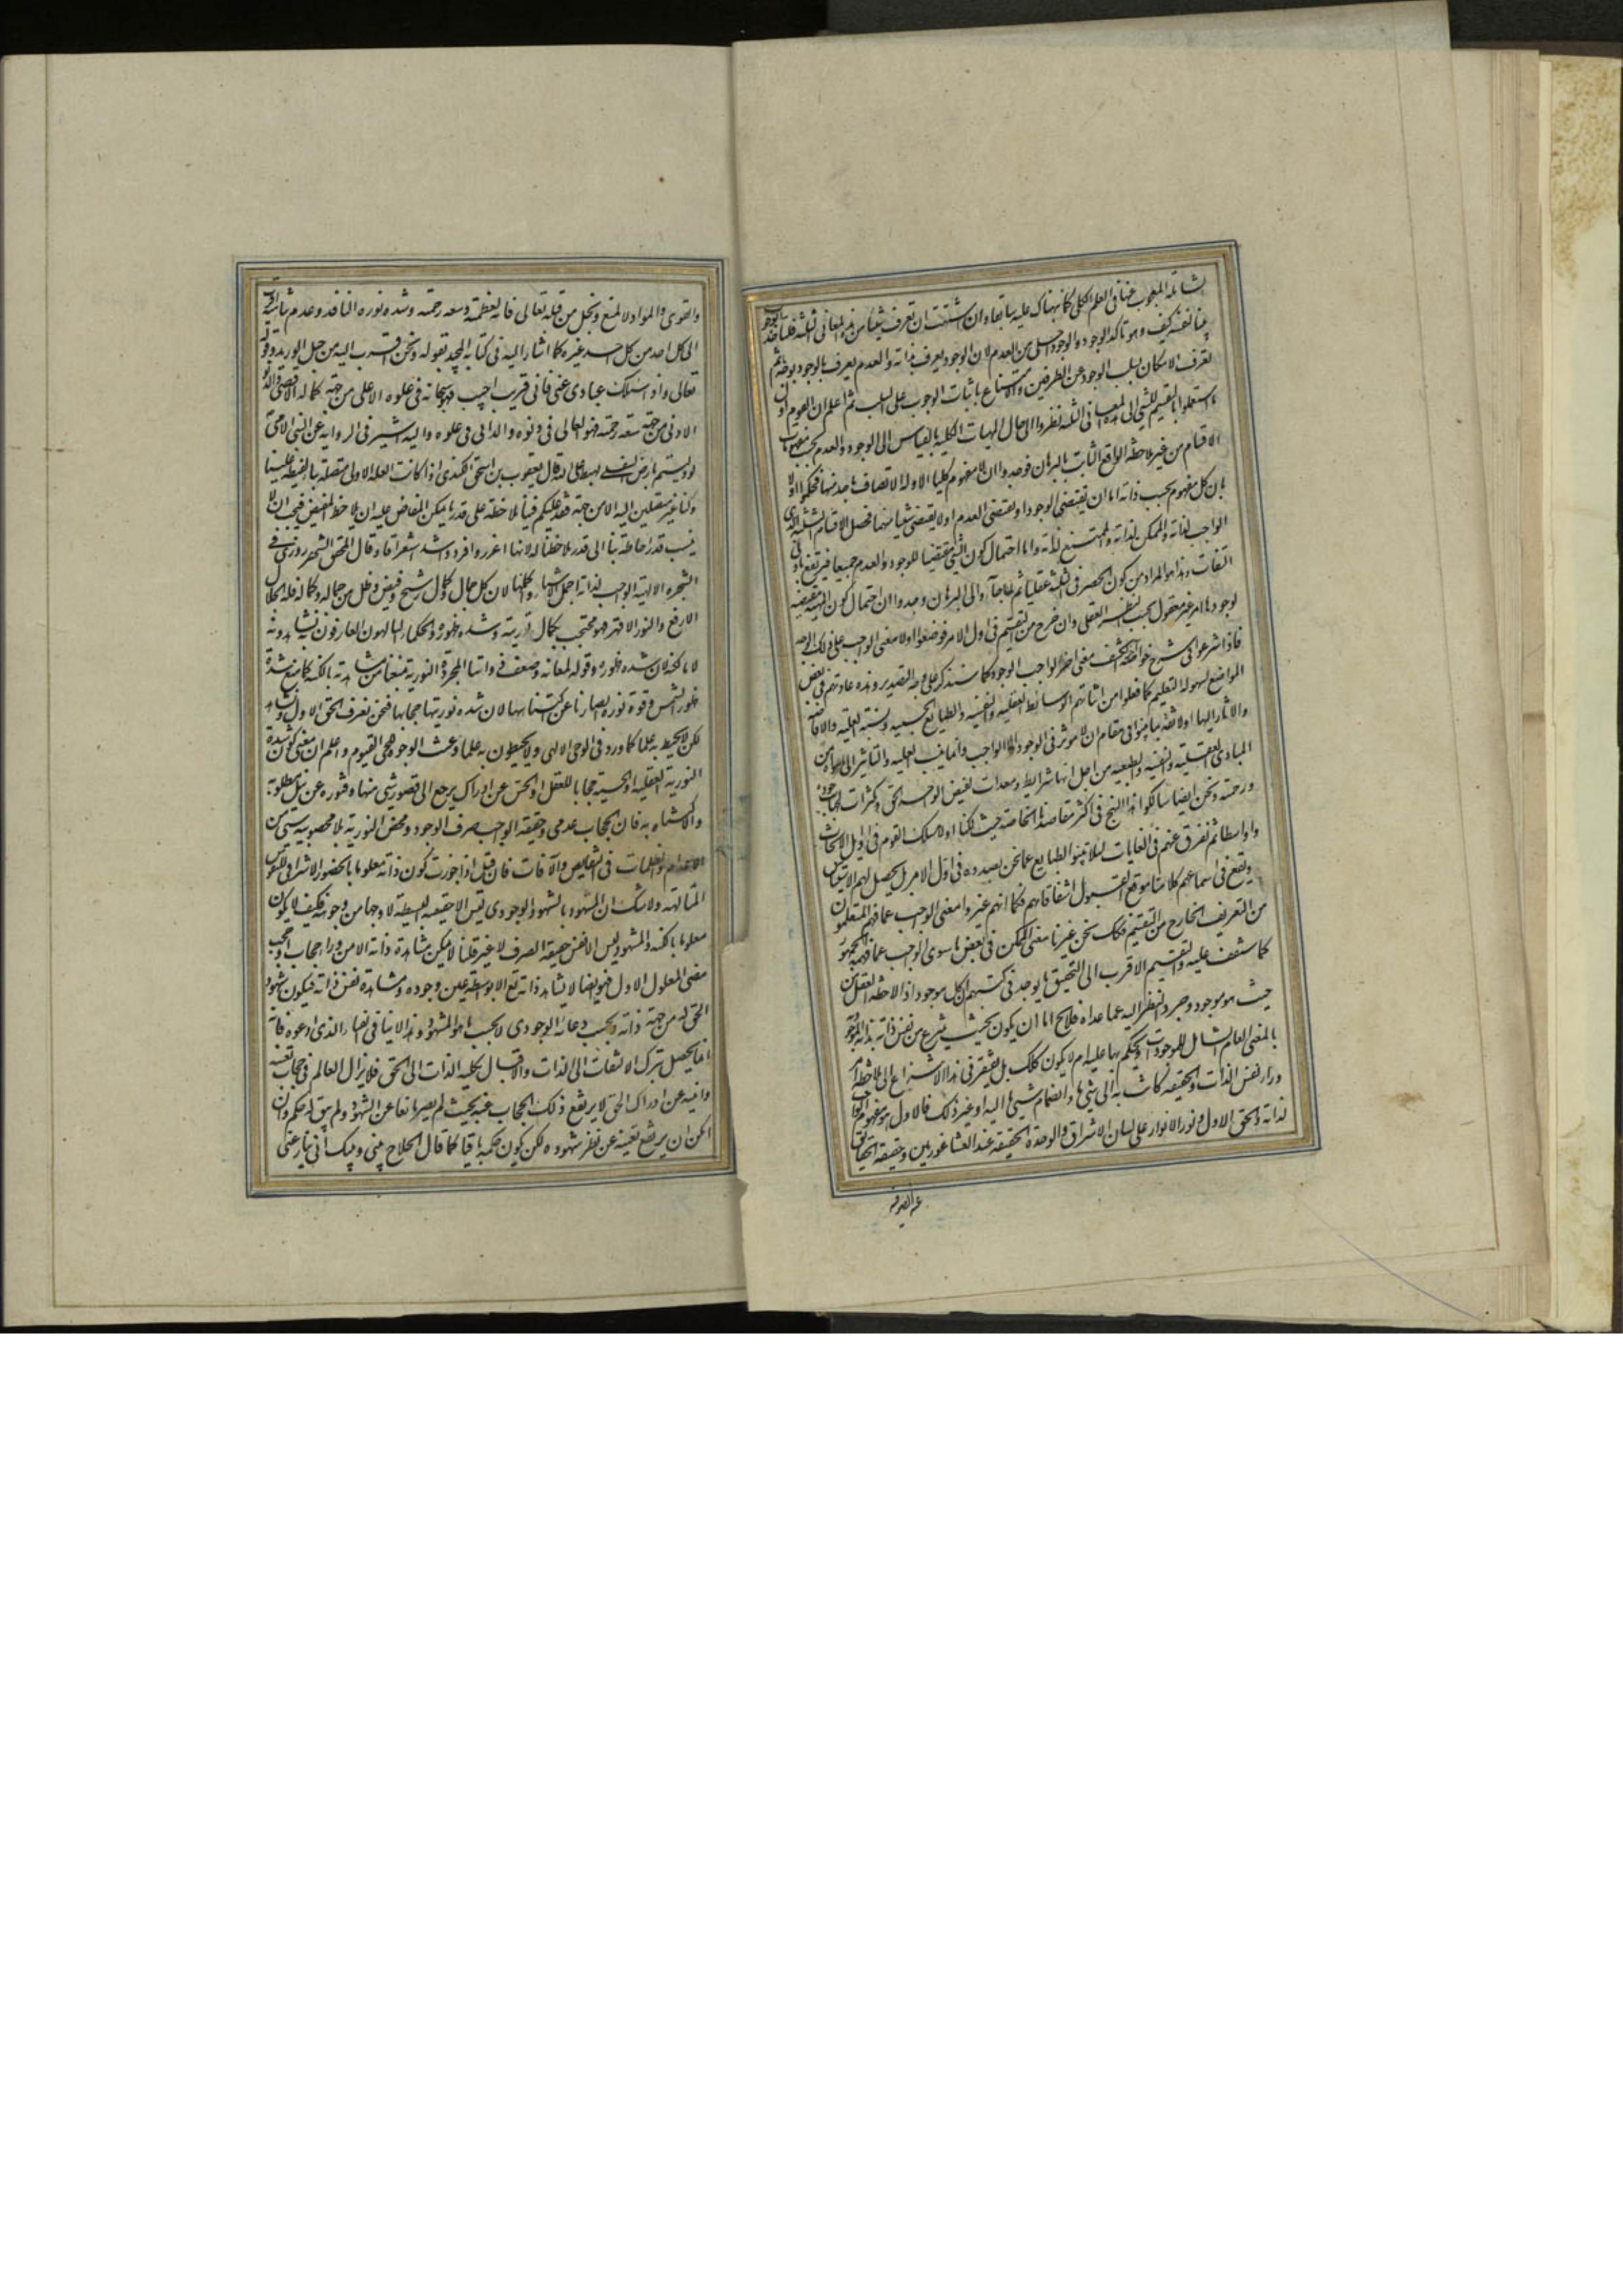 الشاملة المبحوث عنها فى العلم الكلى كما نبهناك عليه سابقا وان اشتهيت ان تعرف شيئا من هذه المعانى الثلثة فلتأخذ الوجوب
بينا بنفسه كيف وهو تاكد الوجود والوجود اجلى من العدم لان الوجود يعرف بذاته والعدم يعرف بالوجود بوجه ثم
تعرف الامكان بسلب الوجوب عن الطرفين والامتناع باثبات الوجوب على السلب ثم اعلم ان القوم اول
ما اشتغلوا بالتقسيم للشئ الى هذه المعانى الثلثة نظروا الى حال المهيات الكلية بالقياس الى الوجود والعدم بحسب مفهومات
الاقسام من غير ملاحظة الواقع الثابت بالبرهان فوجدوا ان لا مفهوم كليا الا وله الاتصاف باحد منها فحكموا اولا
بان كل مفهوم بحسب ذاته اما ان يقتضى الوجود او يقتضى العدم او لا يقتضى شيئا منهما فحصل الاقسام الثلثة
الواجب لذاته والممكن لذاته والممتنع لذاته واما احتمال كون الشئ مقتضيا للوجود والعدم جميعا فيرتفع بادنى
التفات وهذا هو المراد من كون الحصر فى الثلثة عقليا ثم لما جاؤا الى البرهان وجدوا ان احتمال كون المهية مقتضية
لوجودها امر غير معقول بحسب النظر العقلى وان خرج من التقسيم فى اول الامر فوضعوا اولا معنى الواجب على ذلك الوجه
فاذا شرعوا فى شرح خواصه انكشف معنى اخر لواجب الوجود كما سنذكر على وجه التصدير وهذه عادتهم فى بعض
المواضع لسهولة التعليم كما فعلوا من اثباتهم الوسائط العقلية والنفسية والطبايع الجسمية ونسبة العلية والافاضة
والاثار اليها اولا ثقة بما بينوا فى مقام ان لا موثر فى الوجود الا الواجب وانما ينسب العلية والتاثير الى ما سواه من
المبادى العقلية والنفسية والطبيعية من اجل انها شرايط ومعدات لفيض الواحد الحق وتكثرات لجهات جوده
ورحمته ونحن ايضا سالكوا هذا المنهج فى اكثر مقاصدنا الخاصة حيث سلكنا اولا مسلك القوم فى اوايل الابحاث
واواسطها ثم نفترق عنهم فى الغايات لئلا تنبو الطبايع عما نحن بصدده فى اول الامر بل يحصل لهم الاستيناس
ويقع فى اسماعهم كلامنا موقع القبول اشفاقا بهم فكما انهم غيروا معنى الواجب عما فهمه المتعلمون
من التعريف الخارج من التقسيم فكذلك نحن غيرنا معنى الممكن فى بعض ما سوى الواجب عما فهمه الجمهور
كما ستقف عليه والتقسيم الاقرب الى التحقيق ما يوجد فى كتبهم ان كل موجود اذا لاحظه العقل من
حيث هو موجود وجرد النظر اليه عما عداه فلا يخ اما ان يكون بحيث ينتزع من نفس ذاته بذاته الموجودية
بالمعنى العام الشامل للموجودات ويحكم بها عليه ام لا يكون كذلك بل يفتقر فى هذا الانتزاع الى ملاحظة امر
وراء نفس الذات والحقيقة كانتسابه الى شئ ما وانضمام شئ ما اليه او غير ذلك فالاول هو مفهوم الواجب
لذاته والحق الاول ونور الانوار على لسان الاشراق والوحدة الحقيقية عند الفيثاغوريين وحقيقة الحقايق
عند الصوفية
والقوى والمواد لا لمنع وبخل من قبله تعالى فانه لعظمته وسعة رحمته وشدة نوره النافذ وعدم تناهيه اقرب
الى كل احد من كل احد غيره كما اشار اليه فى كتابه المجيد بقوله ونحن اقرب اليه من حبل الوريد وقوله
تعالى واذا سئلك عبادى عنى فانى قريب اجيب فهو سبحانه فى علوه الاعلى من جهة كماله الاقصى والدنو
الادنى من جهة سعة رحمته فهو العالى فى دنوه والدانى فى علوه واليه اشير فى الرواية عن النبى الامى
لو دليتم بارض السفلى لهبط على الله قال يعقوب بن اسحق الكندى اذا كانت العلة الاولى متصلة بنا لفيضه علينا
وكنا غير متصلين اليه الا من جهته فقد يمكن فينا ملاحظته على قدر ما يمكن المفاض عليه ان يلاحظ المفيض فيجب ان لا
ينسب قدر احاطته بنا الى قدر ملاحظتنا له لانها اغزر واوفر واشد استغراقا وقال المحقق الشهرزورى فى
الشجرة الالهية الواجب لذاته اجمل الاشياء واكملها لان كل جمال وكمال رشح وفيض وظل من جماله وكماله فله الجلال
الارفع والنور الاقهر فهو محتجب بكمال نوريته وشدة ظهوره والحكماء المتالهون العارفون به يشاهدونه
لا بالكنه لان شدة ظهوره وقوة لمعانه وضعف ذواتنا المجردة النورية تمنعنا من مشاهدته بالكنه كما منع شدة
ظهور الشمس وقوة نوره ابصارنا عن اكتناهها لان شدة نوريتها حجابها فنحن نعرف الحق الاول ونشاهده
لكن لا نحيط به علما كما ورد فى الوحى الالهى ولا يحيطون به علما وعنت الوجوه للحى القيوم واعلم ان معنى كون شدة
النورية العقلية او الحسية حجابا للعقل او الحس عن ادراك يرجع الى قصور شئ منهما وفتوره عن نيل مطلوبه
والاكتناه به فان الحجاب عدمى وحقيقة الواجب صرف الوجود ومحض النورية بلا مصحوبية شئ من
الاعدام والظلمات فى النقايص والآفات فان قيل اذا جوزت كون ذاته معلوما بالحضور الاشراقى للنفوس
المتالهة ولا شك ان المشهود بالشهود الوجودى ليس الا حقيقته البسيطة لا وجها من وجوهه فكيف لا يكون
معلوما بالكنه والمشهود ليس الا نفس حقيقته الصرف لا غير قلنا لا يمكن مشاهدة ذاته الا من وراء حجاب او حجب
حتى المعلول الاول فهو ايضا لا يشاهد ذاته تع الا بواسطة عين وجوده ومشاهدة نفس ذاته فيكون شهود
الحق له من جهة ذاته وبحسب وعائه الوجودى لا بحسب ما هو المشهود وهذا لا ينافى الفناء الذى ادعوه فانه
انما يحصل بترك الالتفات الى الذات والاقبال بكلية الذات الى الحق فلا يزال العالم فى حجاب تعينه
وانيته عن ادراك الحق لا يرتفع ذلك الحجاب عنه بحيث لم يصر مانعا عن الشهود ولم يبق له حكم وان
امكن ان يرتفع تعينه عن نظر شهوده لكن يكون حكمه باقيا كما قال الحلاج بينى وبينك انى ينازعنى